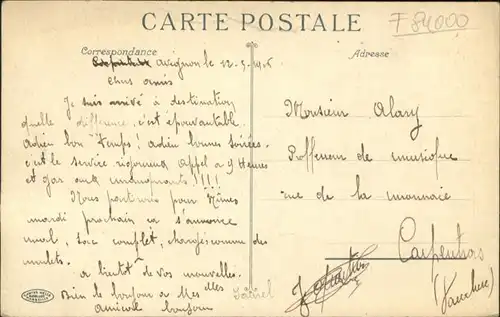 CARTE POSTALE
F 84000
Correspondance
Adresse
Avignon le 22-3-19
Chers amis
Je suis arrivé à destination
quelle différence, c'est épouvantable.
Adieu bon temps! adieu bonnes soirées.
c'est le service rigoureux Appel a 9 Heures
et gar aux manquants!!!!
Nous partirons pour Nîmes
mardi prochain ca s'annonce
mal, sac complet, chargés comme des
mulets.
a bientôt de vos nouvelles.
Bien le bonjour a Mes Elles
amical bonjour
Monsieur Alary
Proffeseur de musique
rue de la monnaie
Carpentras
(Vaucluse)